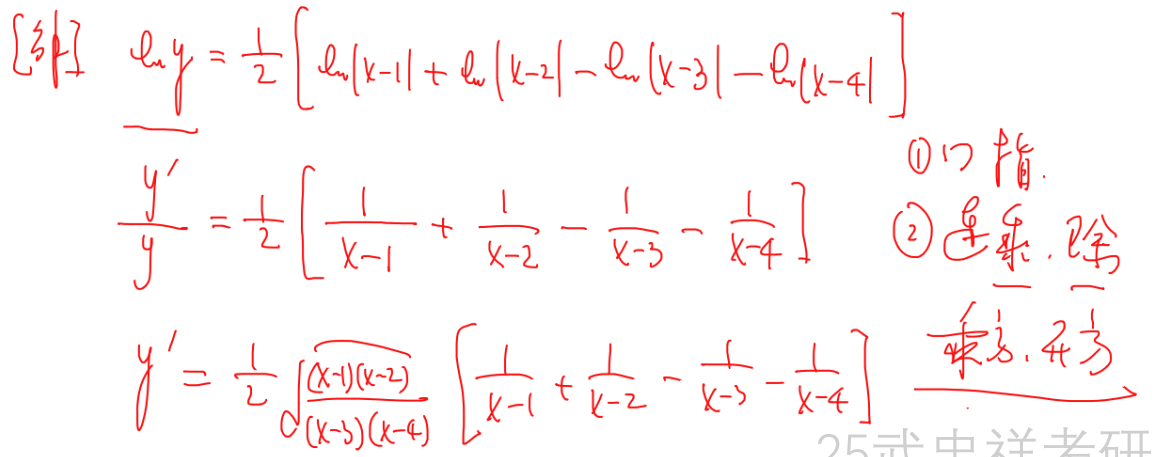 [解] ln y = 1/2 [ ln|x-1| + ln|x-2| - ln|x-3| - ln|x-4| ]
y'/y = 1/2 [ 1/(x-1) + 1/(x-2) - 1/(x-3) - 1/(x-4) ]
y' = 1/2 √((x-1)(x-2)/((x-3)(x-4))) [ 1/(x-1) + 1/(x-2) - 1/(x-3) - 1/(x-4) ]
① 指.
② 连乘.除
乘方.开方
25武忠祥考研